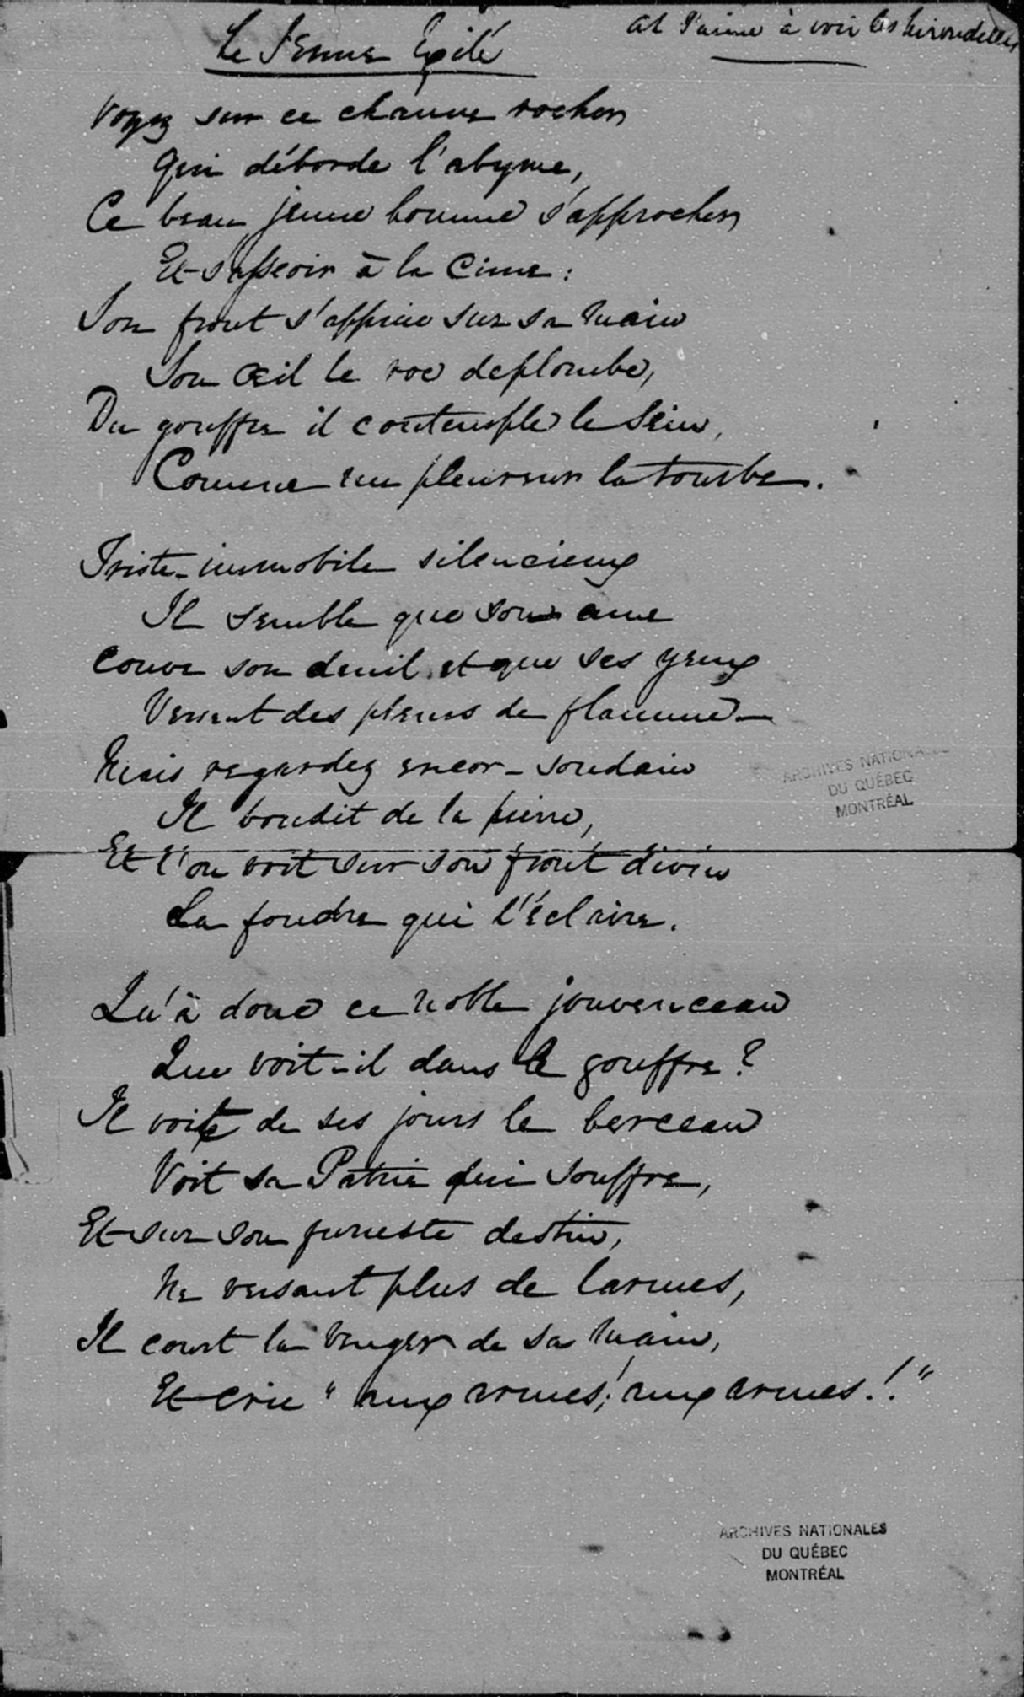 Le Jeune Exilé
al J'aime à voir les hirondelles
Voyez sur ce chauve rocher
Qui déborde l'abyme,
Ce beau jeune homme s'approcher
Et s'asseoir à la cime :
Son front s'appuie sur sa main
Son œil le roc deplombe,
Du gouffre il contemple le sein,
Comme un pleureur la tombe.
Triste - immobile silencieux
Il semble que son ame
Couve son deuil et que ses yeux
Versent des pleurs de flamme -
Mais regardez encor - soudain
Il bondit de la pierre,
Et l'on voit sur son front divin
La foudre qui l'éclaire.
Qu'à donc ce noble jouvenceau
Que voit-il dans le gouffre ?
Il voit de ses jours le berceau
Voit sa Patrie qui souffre,
Et sur son funeste destin,
Ne versant plus de larmes,
Il court la venger de sa main,
Et crie " aux armes! aux armes!"
ARCHIVES NATIONALES
DU QUÉBEC
MONTRÉAL
ARCHIVES NATIONALES
DU QUÉBEC
MONTRÉAL